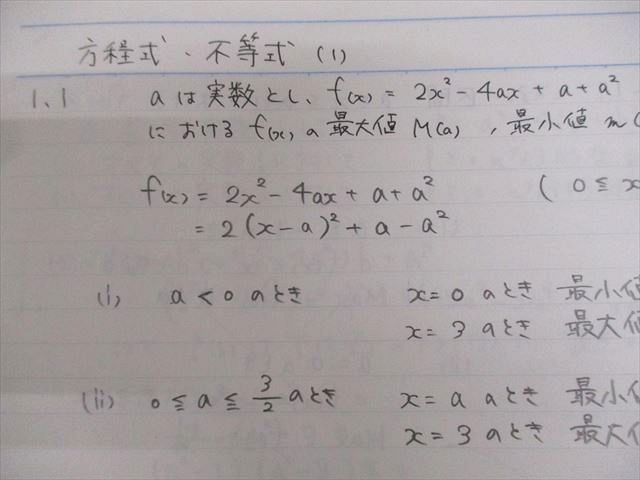 方程式・不等式 (1)
1.1 aは実数とし、f(x) = 2x² - 4ax + a + a²
における f(x) の 最大値 M(a), 最小値 m(
f(x) = 2x² - 4ax + a + a² ( 0 ≦ x
= 2(x-a)² + a - a²
(i) a < 0 のとき x = 0 のとき 最小値
x = 3 のとき 最大値
(ii) 0 ≦ a ≦ 3/2 のとき x = a のとき 最小値
x = 3 のとき 最大値